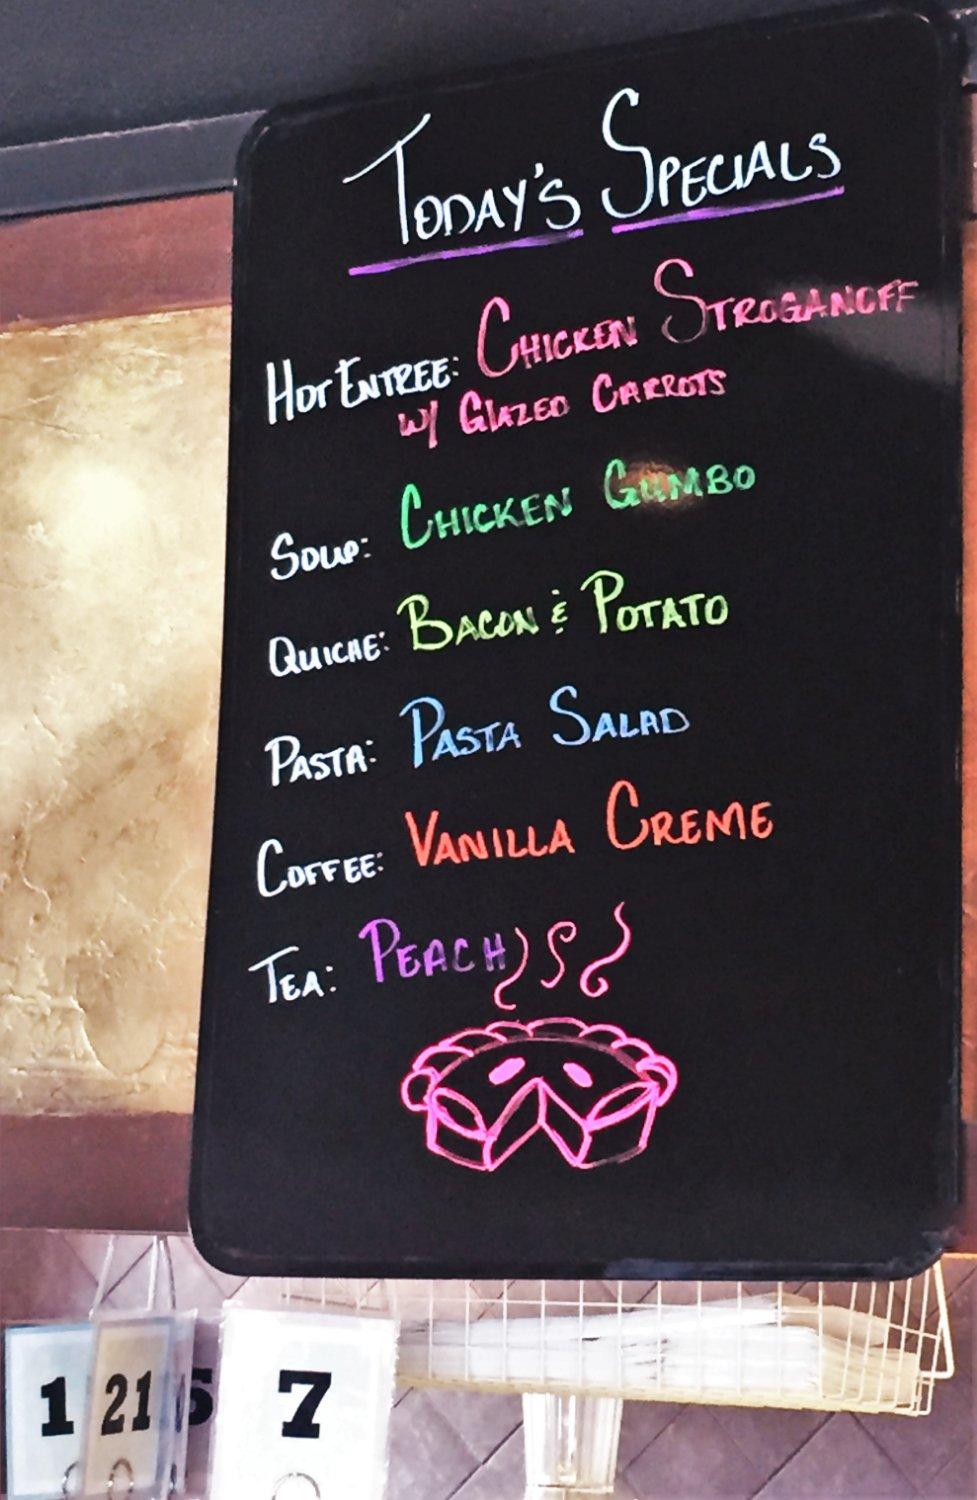 TODAY'S SPECIALS
HOT ENTREE: CHICKEN STROGANOFF
W/ GLAZED CARROTS
SOUP: CHICKEN GUMBO
QUICHE: BACON & POTATO
PASTA: PASTA SALAD
COFFEE: VANILLA CREME
TEA: PEACH
1 21 5 7